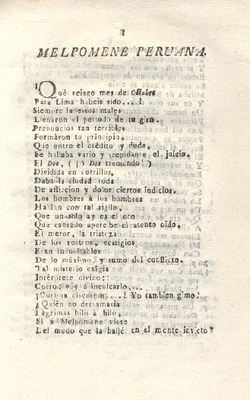 MELPOMENE PERUANA.
Qué aciago mes de Octubre
Para Lima habeis sido....!
Siempre funestos males
Llenaron el periodo de tu giro.
Presuncios tan terribles
Formáron tu principio,
Que entre el crédito y duda,
Se hallaba vario y el juicio.
El Dos, (¡ó Dos tremendo!)
Dividida en corrillos,
Daba la ciudad toda
De afliccion y dolor ciertos indicios.
Los hombres á los hombres
Hablan con tal sigilo,
Que un solo ay es el eco
Que cansado apercibe el atento oido.
El terror, la tristeza
De los rostros, vestigios
Eran indubitables
De lo máximo, y sumo del conflicto.
Tal misterio exigia
Intérprete divino:
Corro: voy á inculcarlo....
¡Cuantas....! Yo tambien gimo.
¿Quién no derramaria
Lágrimas hilo á hilo,
Si á Melpómene viese
Del modo que la hallé en el monte invicto?